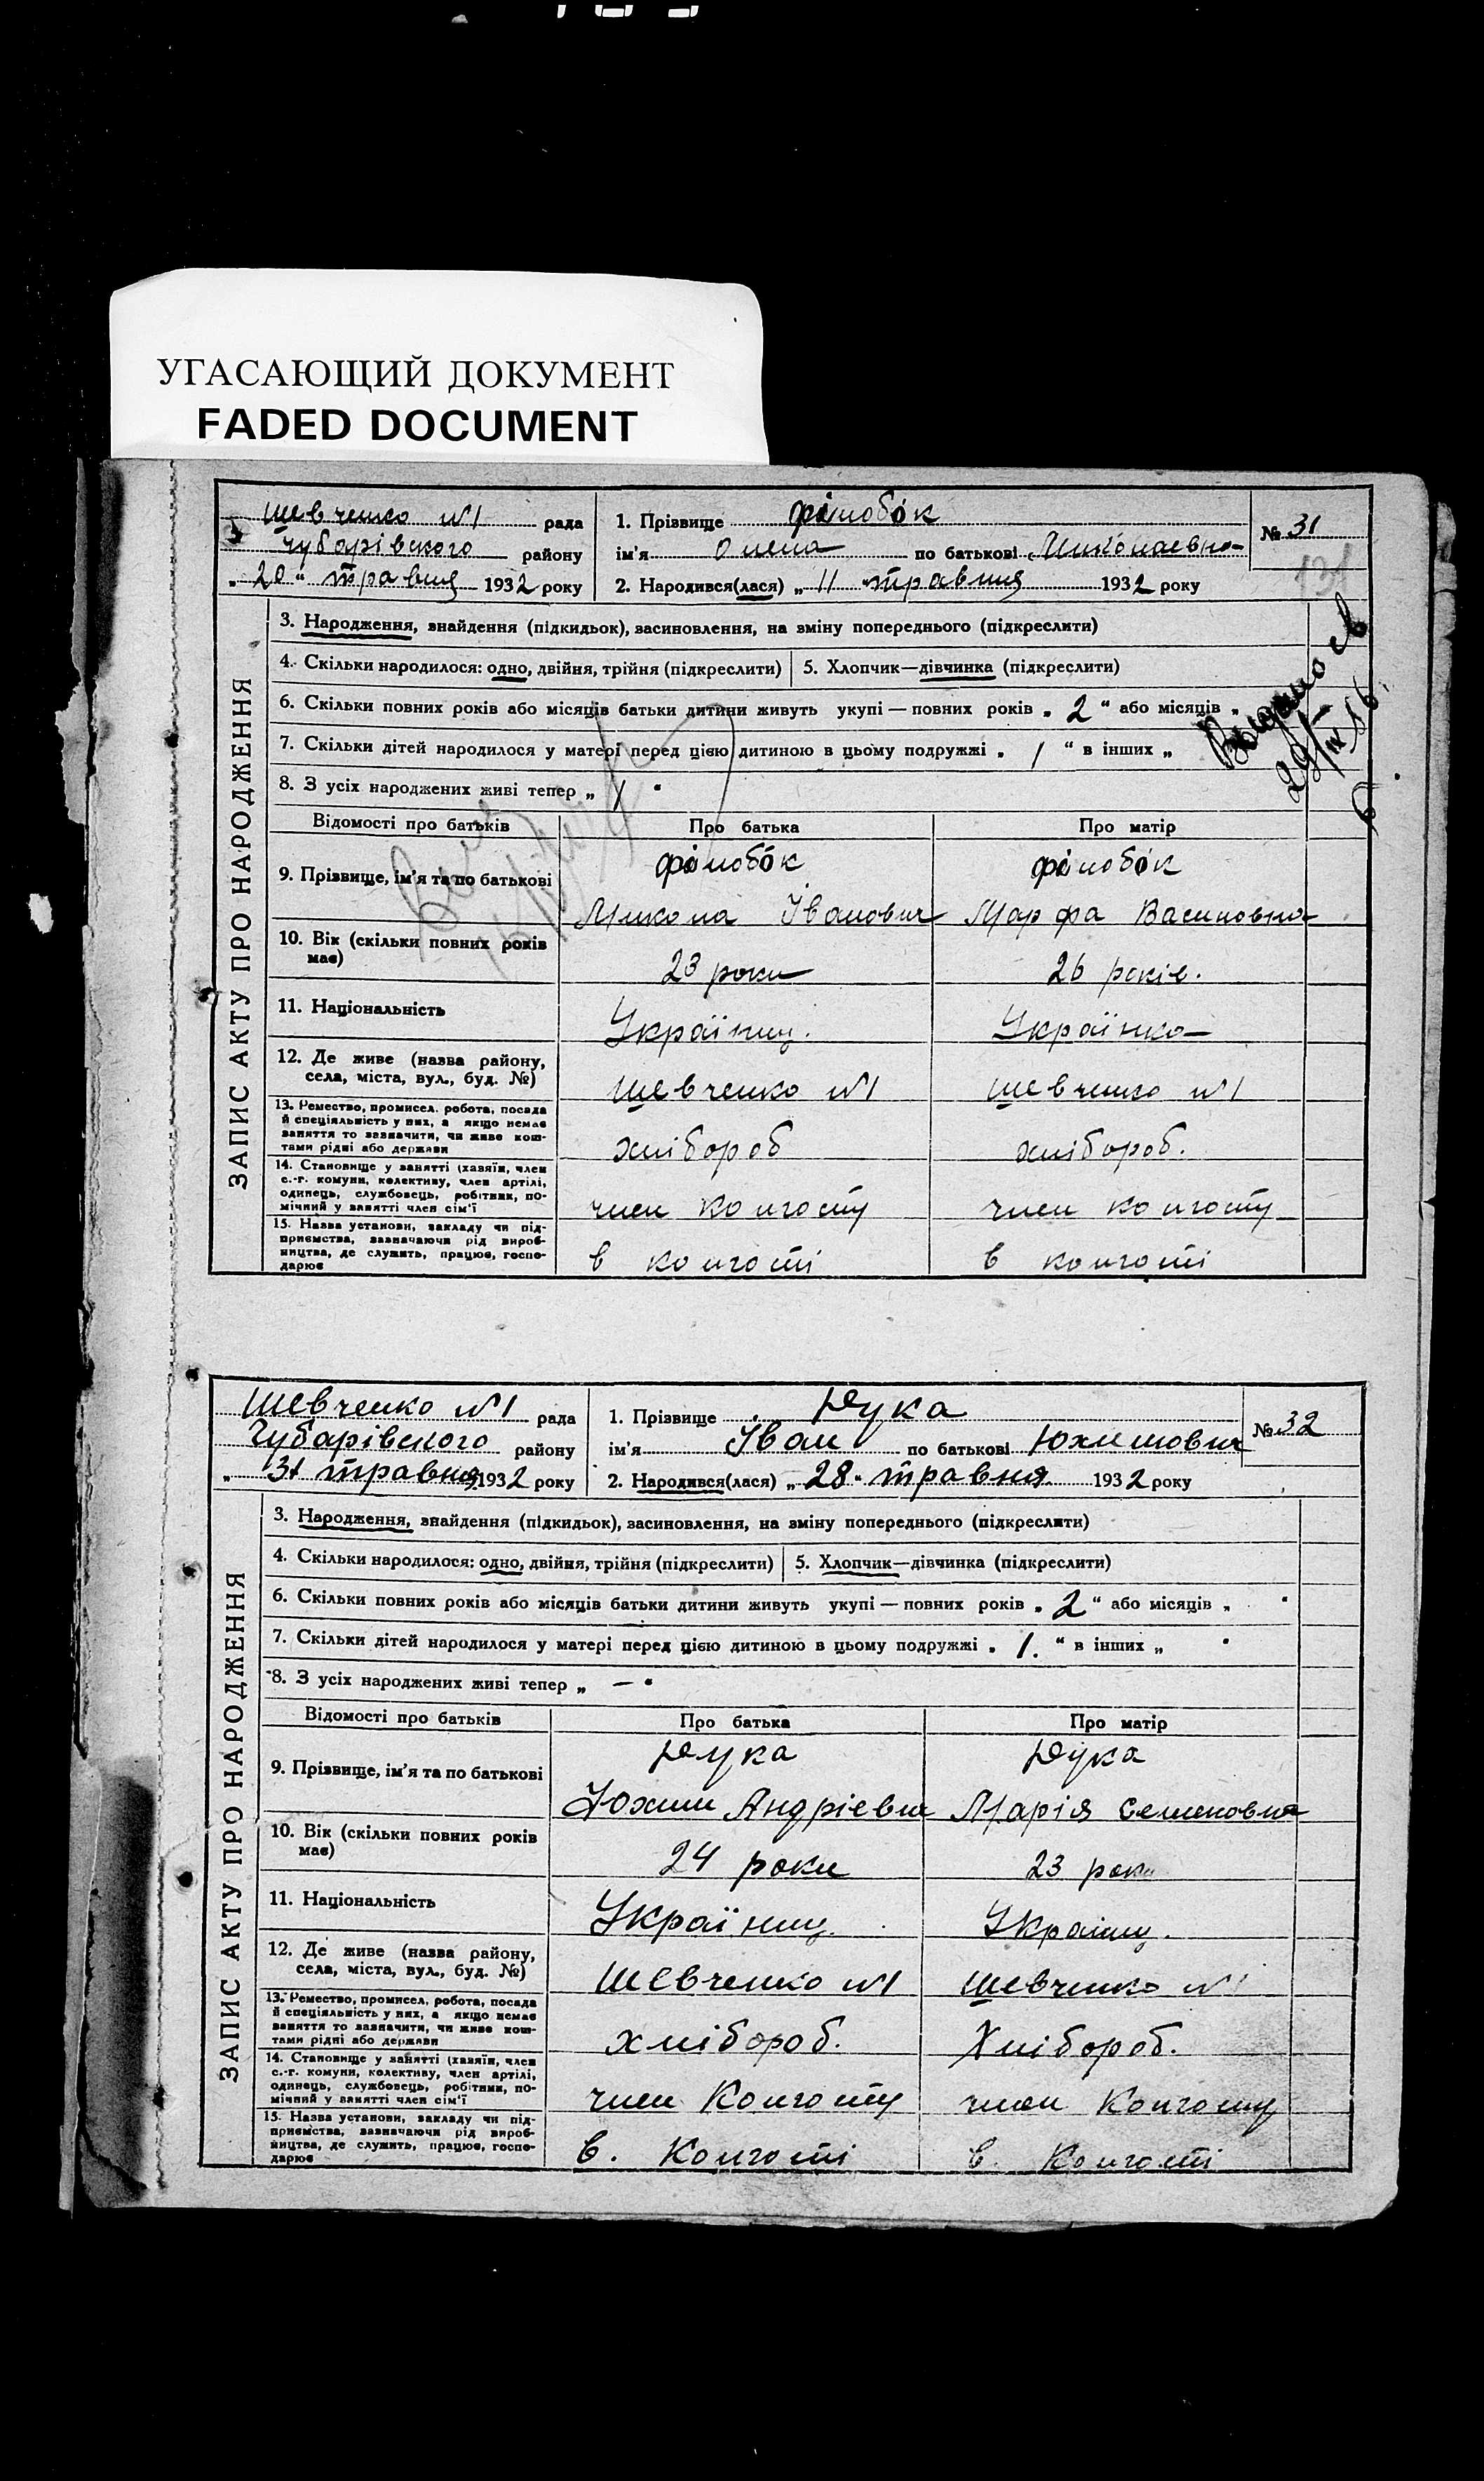 УГАСАЮЩИЙ ДОКУМЕНТ
FADED DOCUMENT
Шевченко №1 рада
Чубарівського району
„20“ травня 1932 року
1. Прізвище Філобок
ім'я Олена по батькові Миколаевна
2. Народився(лася) „11“ травня 1932 року
№ 31
131
ЗАПИС АКТУ ПРО НАРОДЖЕННЯ
3. Народження, знайдення (підкидьок), засиновлення, на зміну попереднього (підкреслити)
4. Скільки народилося: одно, двійня, трійня (підкреслити) 5. Хлопчик—дівчинка (підкреслити)
6. Скільки повних років або місяців батьки дитини живуть укупі — повних років „2“ або місяців „
7. Скільки дітей народилося у матері перед цією дитиною в цьому подружжі „1“ в інших „
8. З усіх народжених живі тепер „1“
Видано св
29/IV 86
Відомості про батьків Про батька Про матір
9. Прізвище, ім'я та по батькові
Філобок Філобок
Микола Іванович Марфа Василовна
10. Вік (скільки повних років має)
23 роки 26 років.
11. Національність
Українец. Українка
12. Де живе (назва району, села, міста, вул., буд. №)
Шевченко №1 Шевченко №1
13. Ремество, промисел, робота, посада
й спеціяльність у них, а якщо немає
заняття то зазначити, чи живе кош-
тами рідні або держави
хлібороб хлібороб.
14. Становище у занятті (хазяїн, член
с.-г. комуни, колективу, член артілі,
одинець, службовець, робітник, по-
мічний у занятті член сім'ї
член колгоспу член колгоспу
15. Назва установи, закладу чи під-
приємства, зазначаючи рід вироб-
ництва, де служить, працює, госпо-
дарює
в колгоспі в колгоспі
Шевченко №1 рада
Чубарівського району
„31 травня 1932 року
1. Прізвище Дука
ім'я Іван по батькові Юхимович
2. Народився(лася) „28“ травня 1932 року
№ 32
ЗАПИС АКТУ ПРО НАРОДЖЕННЯ
3. Народження, знайдення (підкидьок), засиновлення, на зміну попереднього (підкреслити)
4. Скільки народилося: одно, двійня, трійня (підкреслити) 5. Хлопчик—дівчинка (підкреслити)
6. Скільки повних років або місяців батьки дитини живуть укупі — повних років „2“ або місяців „ “
7. Скільки дітей народилося у матері перед цією дитиною в цьому подружжі „1.“ в інших „ “
8. З усіх народжених живі тепер „ — “
Відомості про батьків Про батька Про матір
9. Прізвище, ім'я та по батькові
Дука Дука
Юхим Андрієвич Марія Семеновна
10. Вік (скільки повних років має)
24 роки 23 роки
11. Національність
Українец. Українец.
12. Де живе (назва району, села, міста, вул., буд. №)
Шевченко №1 Шевченко №1
13. Ремество, промисел, робота, посада
й спеціяльність у них, а якщо немає
заняття то зазначити, чи живе кош-
тами рідні або держави
хлібороб. Хлібороб.
14. Становище у занятті (хазяїн, член
с.-г. комуни, колективу, член артілі,
одинець, службовець, робітник, по-
мічний у занятті член сім'ї
член Колгоспу член Колгоспу
15. Назва установи, закладу чи під-
приємства, зазначаючи рід вироб-
ництва, де служить, працює, госпо-
дарює
в. Колгоспі в. Колгоспі